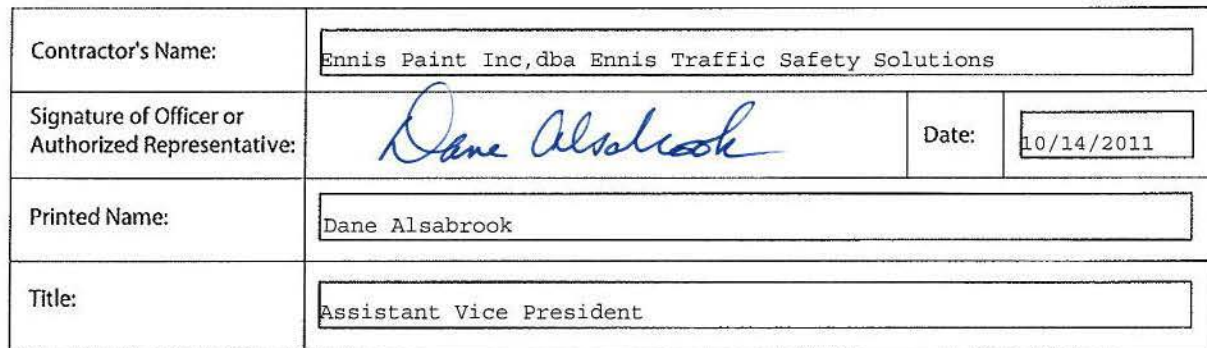 Contractor's Name: Ennis Paint Inc,dba Ennis Traffic Safety Solutions
Signature of Officer or
Authorized Representative: Dane Alsabrook Date: 10/14/2011
Printed Name: Dane Alsabrook
Title: Assistant Vice President